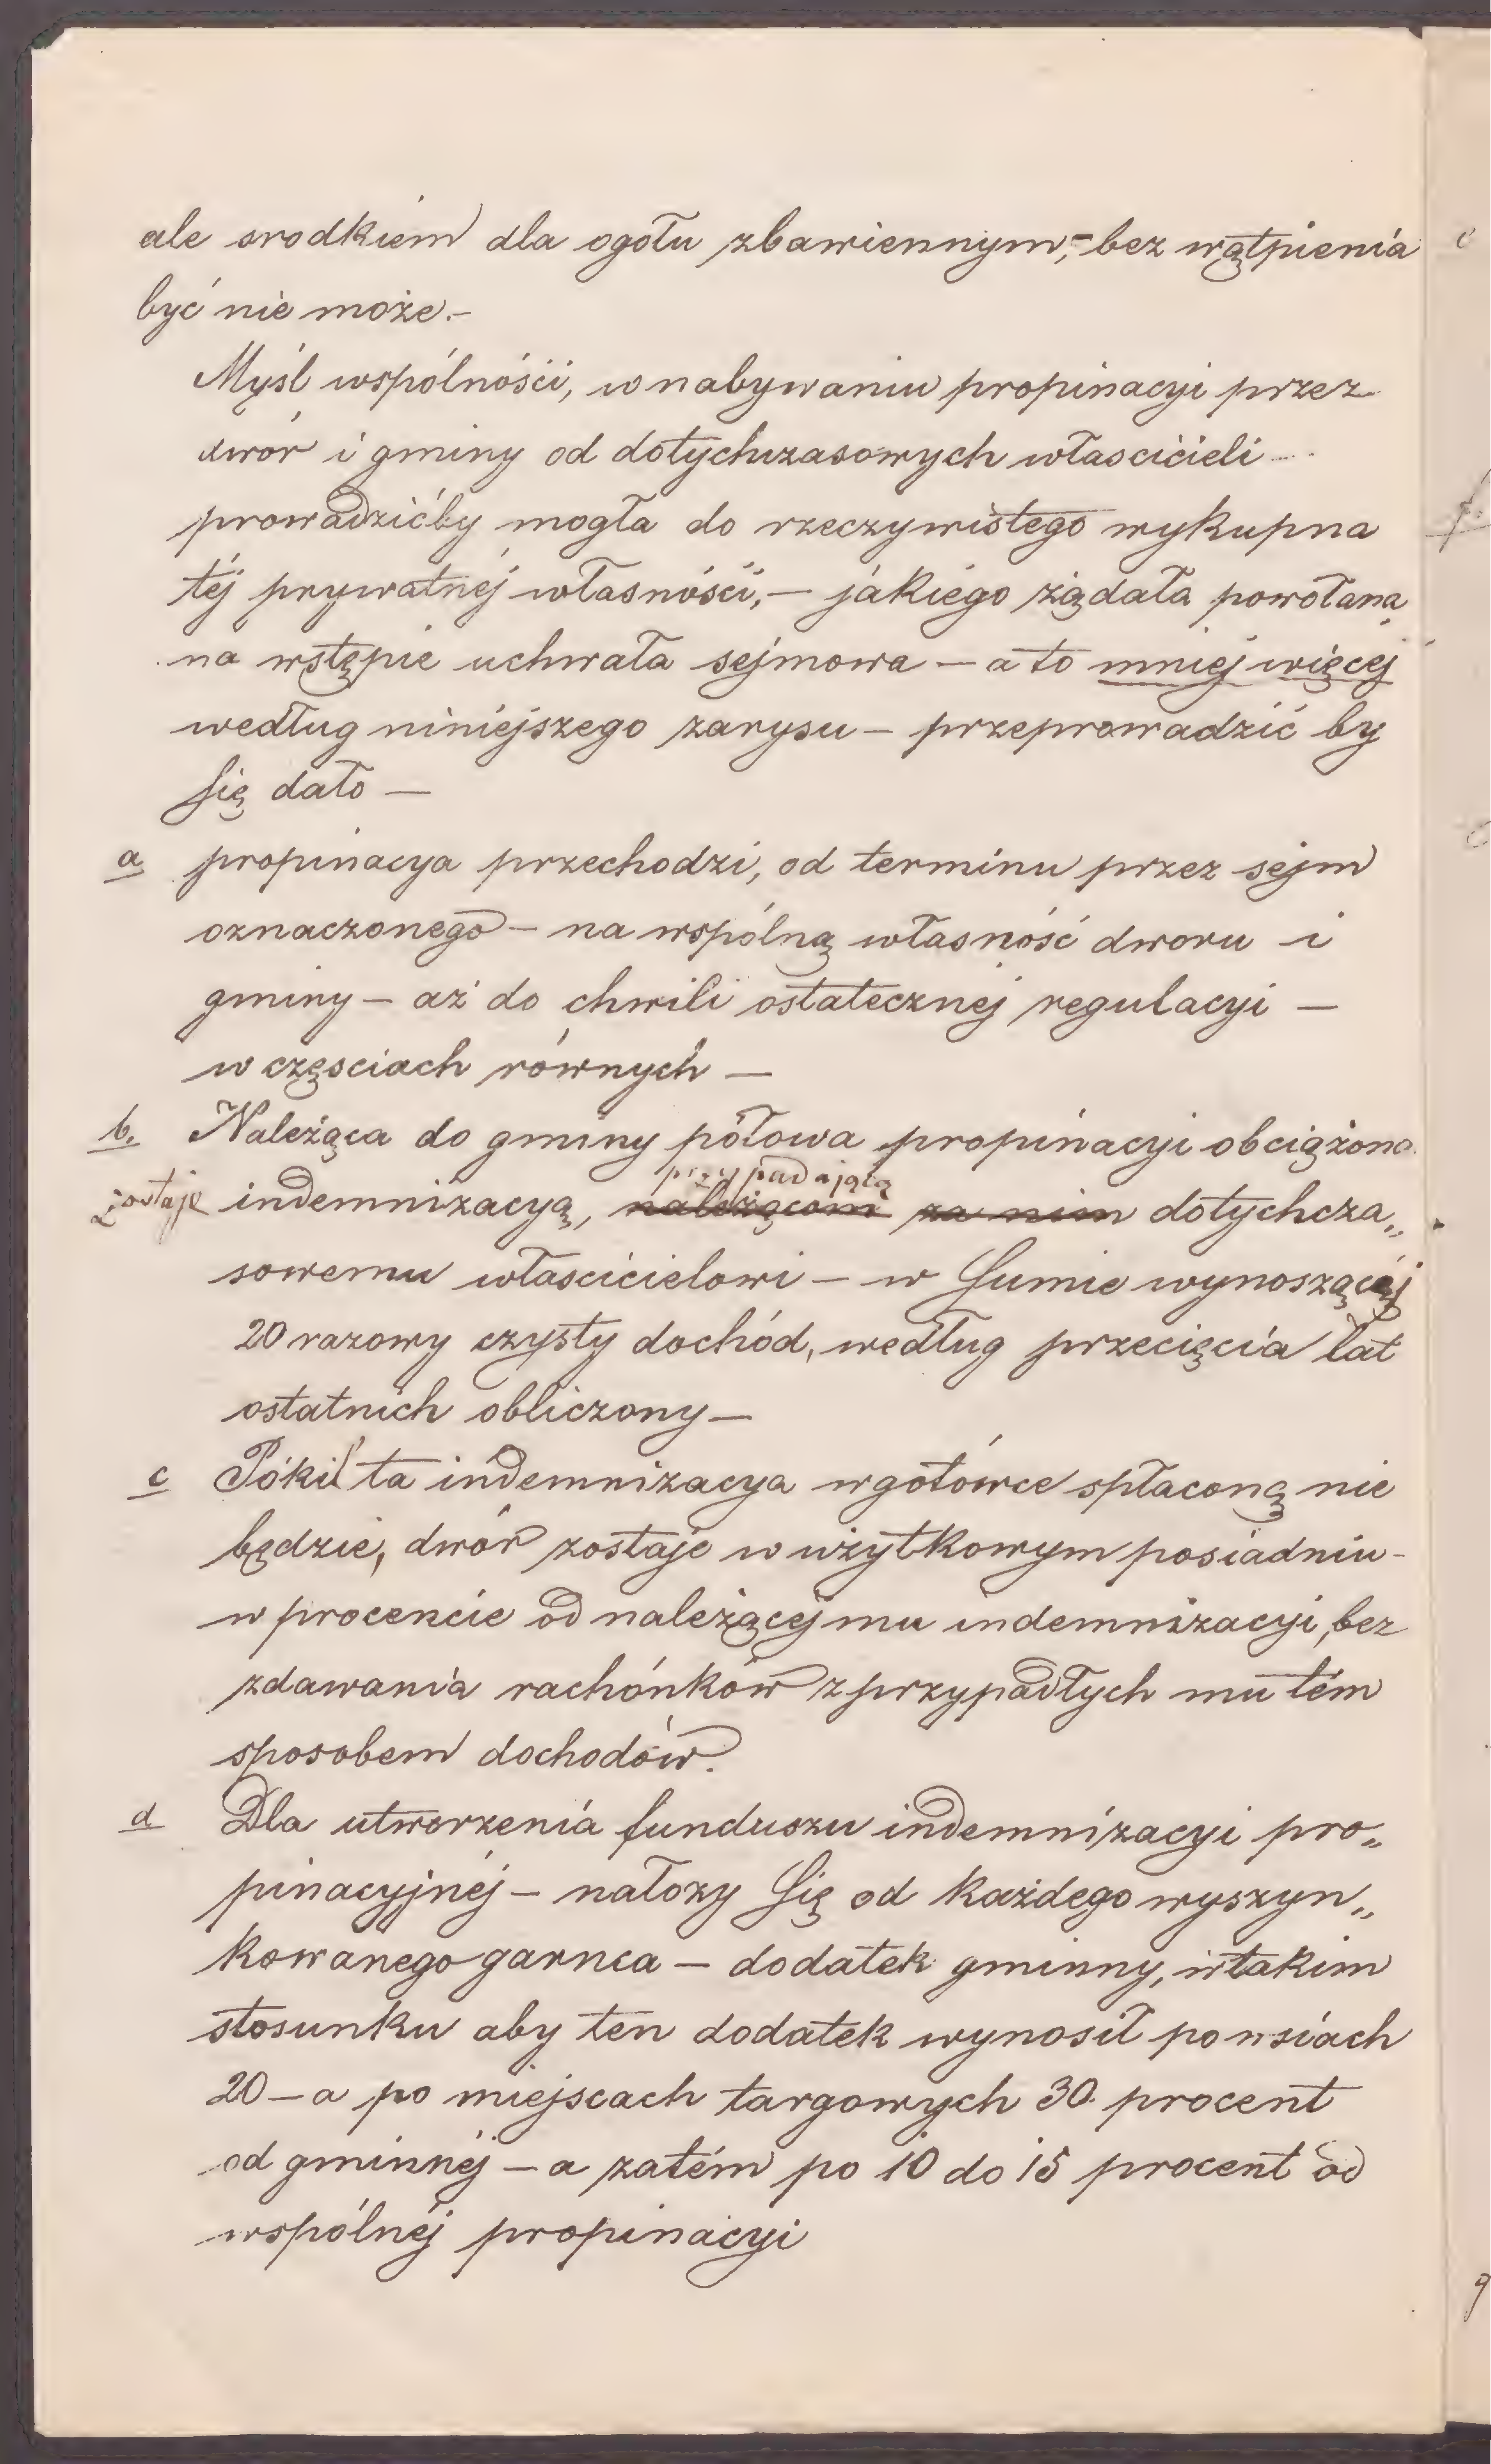 ale srodkiem dla ogołu zbawiennym,- bez wątpienia
być nie może.-
Myśl wspólnośći, w nabywaniu propinacyi przez
dwór i gminy od dotychczasowych własćićieli
prowadzićby mogła do rzeczywistego wykupna
téj prywatnéj własnośći, — jakiego żądała powołana
na wstępie uchwała sejmowa — a to mniéj więcéj
według niniejszego zarysu — przeprowadzić by
się dało —
a propinacya przechodzi, od terminu przez sejm
oznaczonego — na wspólną własność dworu i
gminy — aż do chwili ostatecznéj regulacyi —
w częsciach równych —
b. Należąca do gminy połowa propinacyi obciążona
przypadającą
zostaje indemnizacyą, należącom za nim dotychcza„
sowemu włascicielowi — w sumie wynoszącéj
20 razowy czysty dochód, według przecięcia lat
ostatnich obliczony —
c Póki ta indemnizacya w gotówce spłaconą nie
będzie, dwór zostaje w użytkowym posiadniu -
w procencie od należącej mu indemnizacyi, bez
zdawania rachónków z przypadłych mu tém
sposobem dochodów.
d Dla utworzenia funduszu indemnizacyi pro„
pinacyjnéj — nałozy się od każdego wyszyn„
kowanego garnca — dodatek gminny, w takim
stosunku aby ten dodatek wynosił po wsiach
20 — a po miejscach targowych 30. procent
od gminnéj — a zatém po 10 do 15 procent od
wspólnéj propinacyi